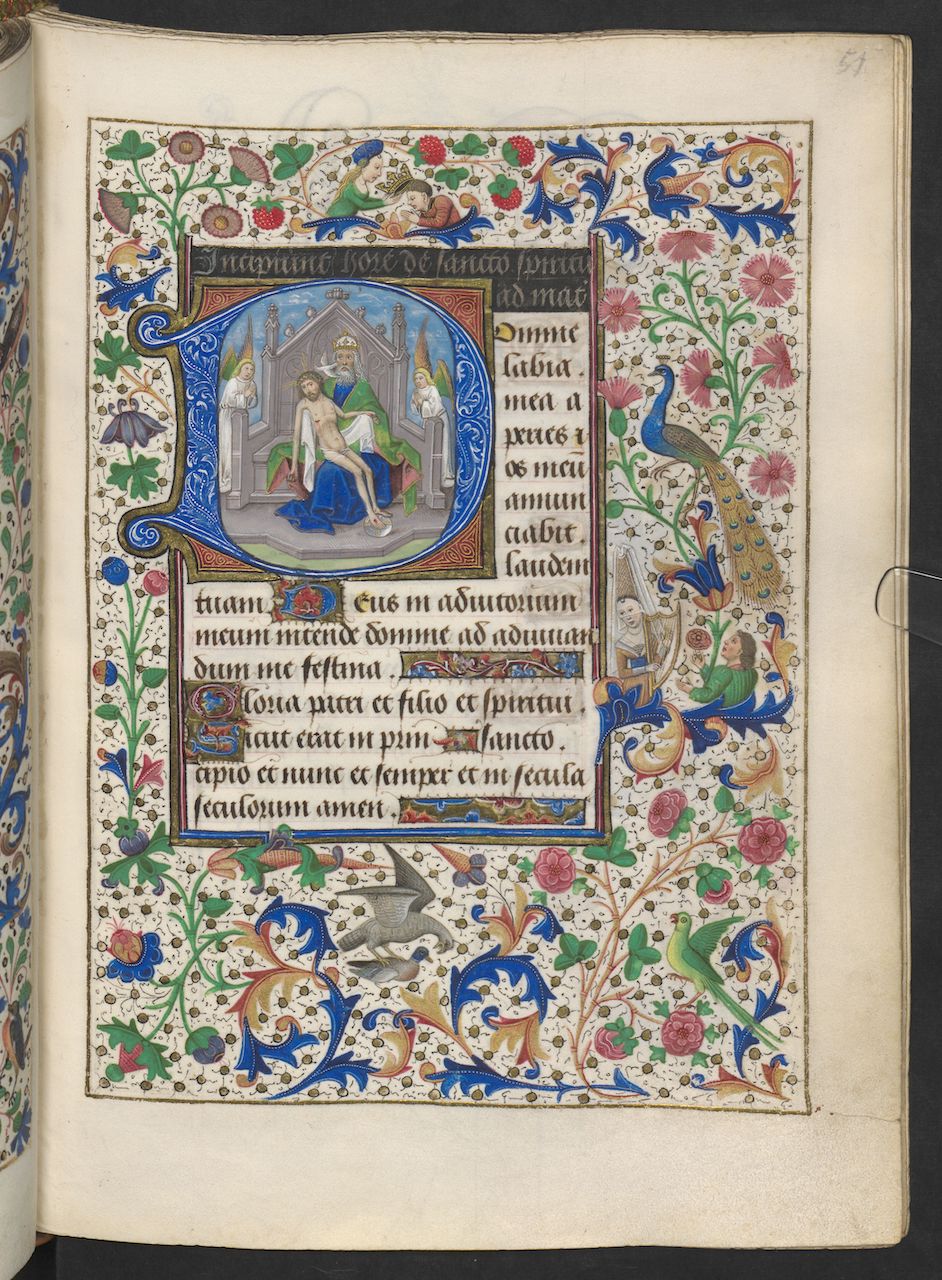 51
Incipiunt hore de sancto spiritu
ad mat
DOmine
labia .
mea a
peries ⁊
os meū
annun
ciabit .
laudem
tuam Deus in adiutorium
meum intende domine ad adiuuan
dum me festina .
Gloria patri et filio et spiritui .
Sicut erat in prin sancto .
cipio et nunc et semper et in secula
seculorum amen .